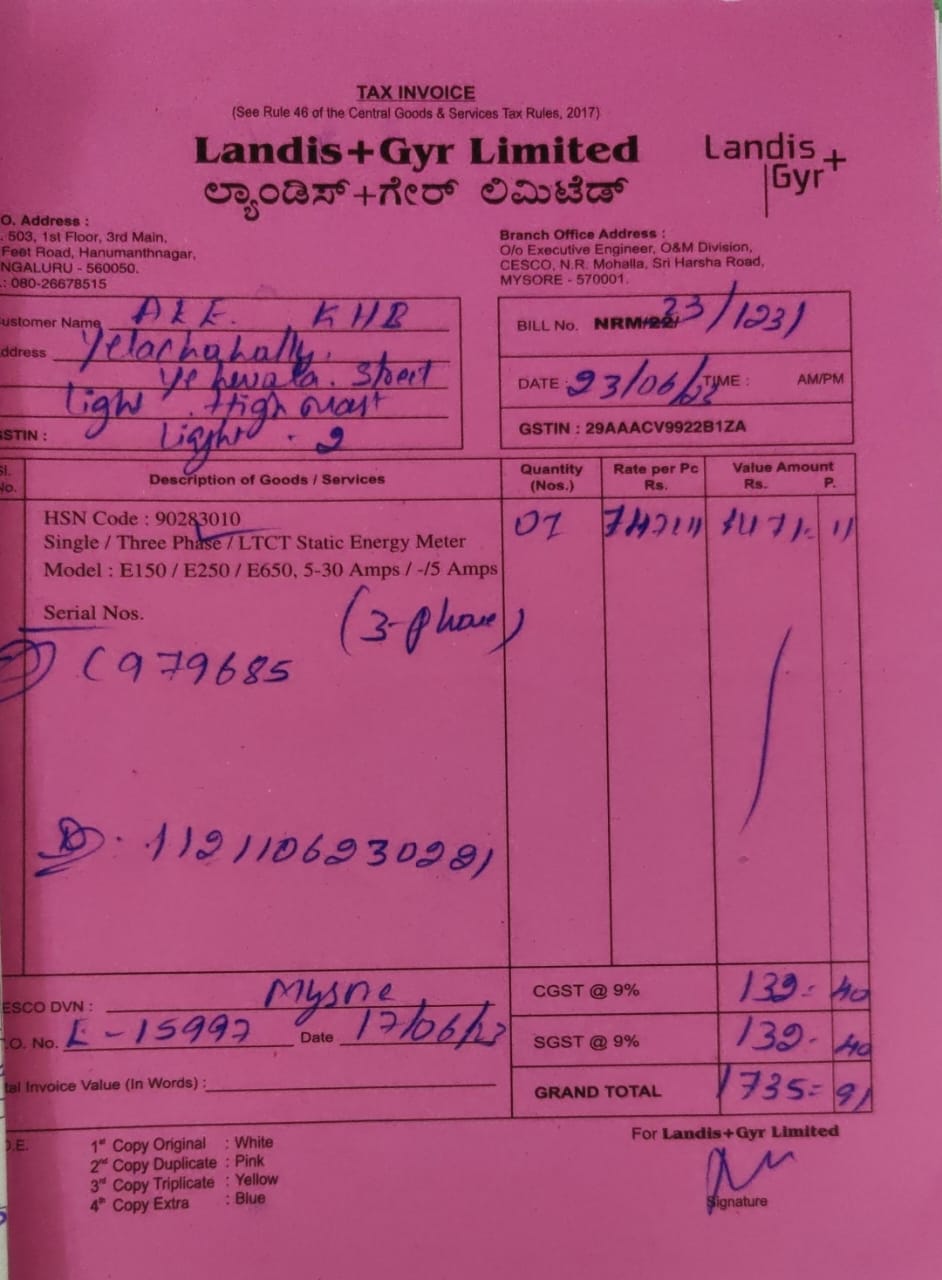 TAX INVOICE
(See Rule 46 of the Central Goods & Services Tax Rules, 2017)
Landis+Gyr Limited
ಲ್ಯಾಂಡಿಸ್+ಗೇರ್ ಲಿಮಿಟೆಡ್
Landis+
Gyr
O. Address :
. 503, 1st Floor, 3rd Main,
Feet Road, Hanumanthnagar,
NGALURU - 560050.
.: 080-26678515
Branch Office Address :
O/o Executive Engineer, O&M Division,
CESCO, N.R. Mohalla, Sri Harsha Road,
MYSORE - 570001.
ustomer Name AEE. KHB
ddress Yelachahally.
Street
Light . High mast
STIN : Light . 2
BILL No. NRM/22/ 23/1231
DATE : 23/06/ TIME : AM/PM
GSTIN : 29AAACV9922B1ZA
Sl. No.
Description of Goods / Services
Quantity (Nos.)
Rate per Pc Rs.
Value Amount Rs. P.
HSN Code : 90283010
Single / Three Phase / LTCT Static Energy Meter
Model : E150 / E250 / E650, 5-30 Amps / -/5 Amps
01
11
Serial Nos.
(3-phase)
979685
D. 1121106230221
ESCO DVN : Mysore
.O. No. E-15997 Date 17/06/23
tal Invoice Value (In Words) :
CGST @ 9% 132- 40
SGST @ 9% 132- 40
GRAND TOTAL 1735= 91
D.E.
1st Copy Original : White
2nd Copy Duplicate : Pink
3rd Copy Triplicate : Yellow
4th Copy Extra : Blue
For Landis+Gyr Limited
Signature